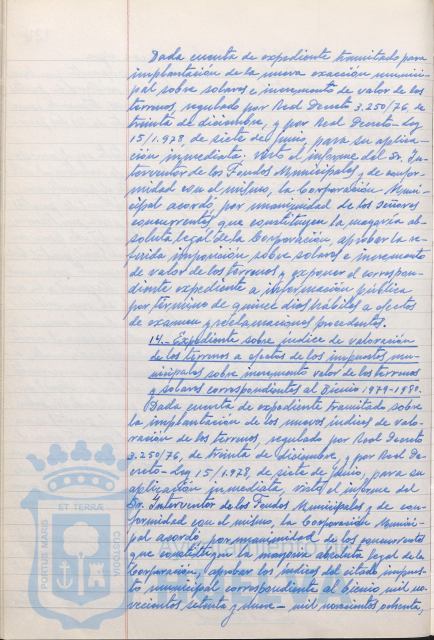 Dada cuenta de expediente tramitado para
implantación de la nueva exacción munici-
pal sobre solares e incremento de valor de los
terrenos, regulado por Real Decreto 3.250/76, de
treinta de diciembre, y por Real Decreto-Ley
15/1.978, de siete de junio, para su aplica-
ción inmediata; visto el informe del Sr. In-
terventor de los Fondos Municipales y de confor-
midad con el mismo, la Corporación Muni-
cipal acordó, por unanimidad de los señores
concurrentes, que constituyen la mayoría ab-
soluta legal de la Corporación, aprobar la re-
ferida imposición, sobre solares e incremento
de valor de los terrenos y exponer el correspon-
diente expediente a información pública
por término de quince días hábiles a efectos
de examen y reclamaciones procedentes.
14.- Expediente sobre índice de valoración
de los terrenos a efectos de los impuestos mu-
nicipales sobre incremento valor de los terrenos
y solares correspondientes al Bienio 1979-1980.
Dada cuenta de expediente tramitado sobre
la implantación de los nuevos índices de valo-
ración de los terrenos, regulado por Real Decreto
3.250/76, de treinta de diciembre, y por Real De-
creto-Ley 15/1.978, de siete de junio, para su
aplicación inmediata, visto el informe del
Sr. Interventor de los Fondos Municipales y de con-
formidad con el mismo, la Corporación Munici-
pal acordó, por unanimidad de los concurrentes
que constituyen la mayoría absoluta legal de la
Corporación, aprobar los índices del citado impues-
to municipal correspondiente al bienio mil no-
vecientos setenta y nueve - mil novecientos ochenta,
PORTUS MARIS ET TERRÆ CUSTODIA